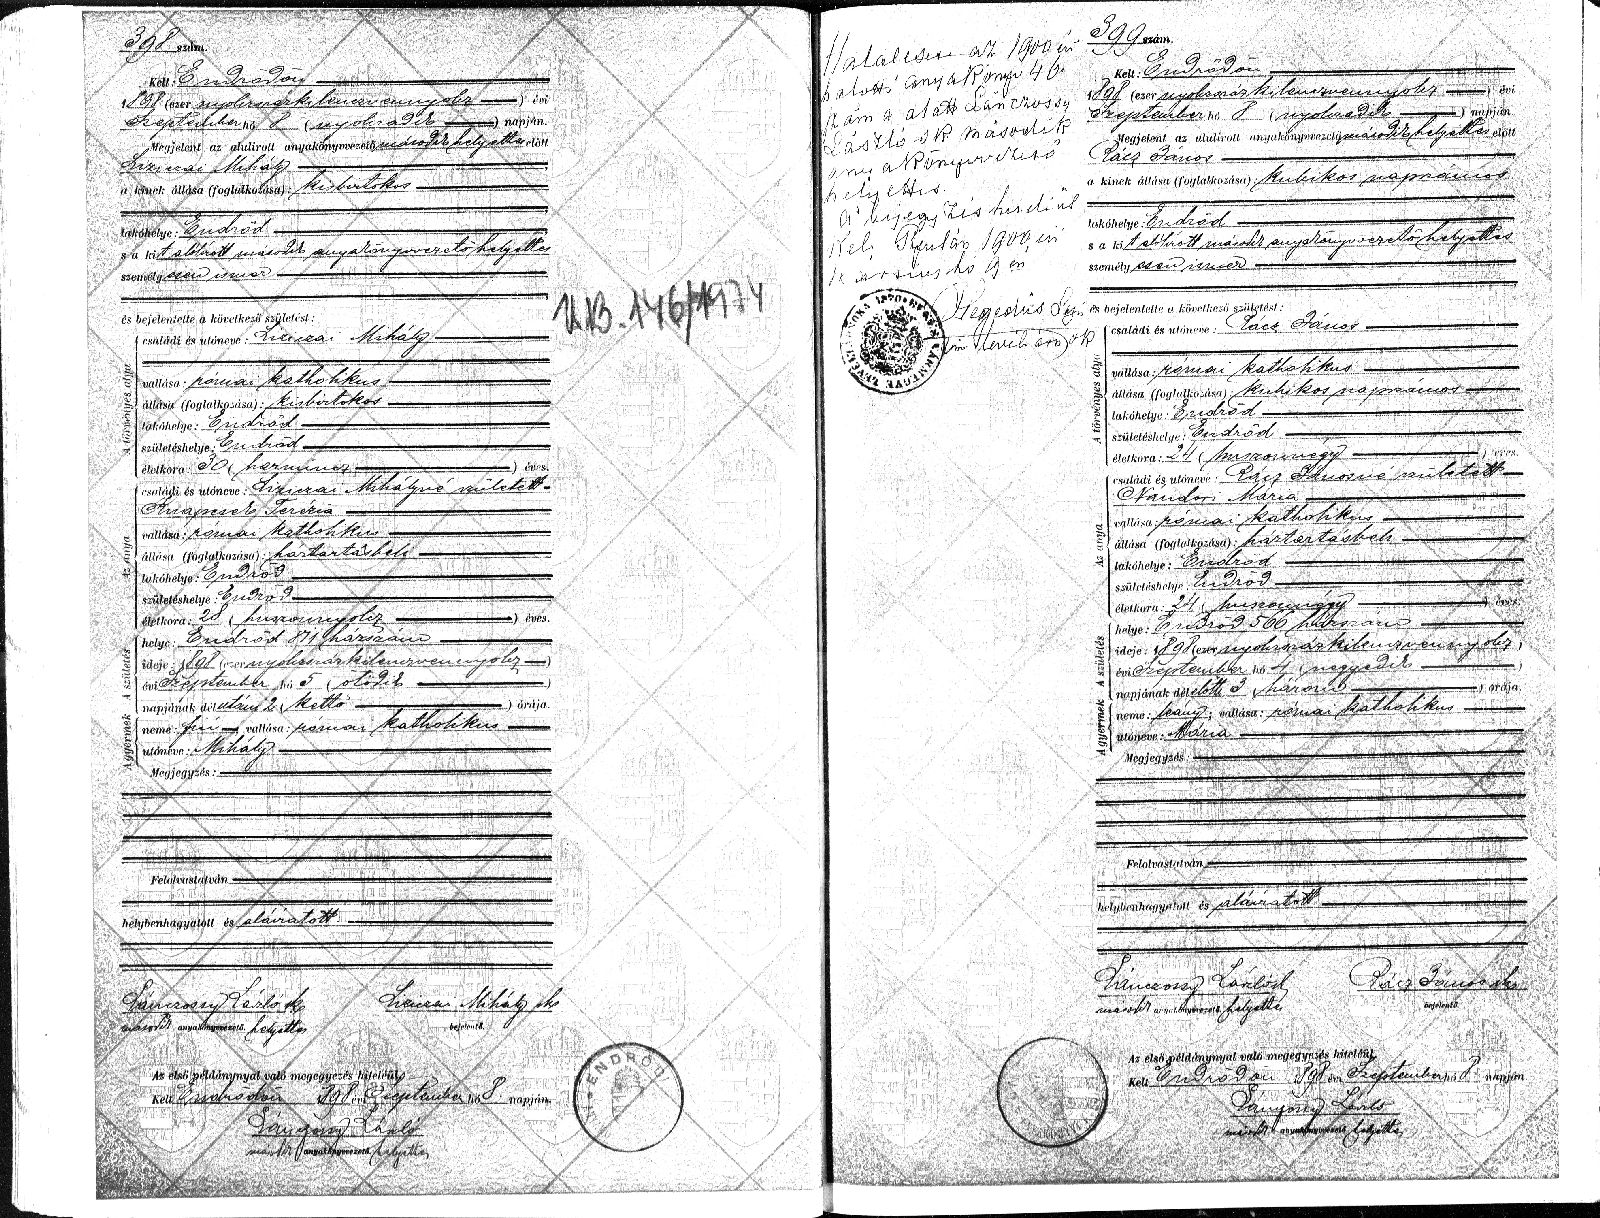 398 szám.
Kelt: Endrődön
1898 (ezer nyolcszázkilenczvennyolcz) évi
Szeptember hó 8 (nyolczadik) napján.
Megjelent az alulirott anyakönyvvezető második helyettes előtt
Liziczai Mihály
a kinek állása (foglalkozása): kisbirtokos
lakóhelye: Endrőd
s a kit alólirott második anyakönyvvezető helyettes
személyesen ismer
és bejelentette a következő születést:
A törvényes atya
családi és utóneve: Liziczai Mihály
vallása: római katholikus
állása (foglalkozása): kisbirtokos
lakóhelye: Endrőd
születéshelye: Endrőd
életkora: 30 (harmincz) éves.
Az anya
családi és utóneve: Liziczai Mihályné született
Knapcsek Terézia
vallása: római katholikus
állása (foglalkozása): háztartásbeli
lakóhelye: Endrőd
születéshelye: Endrőd
életkora: 28 (huszonnyolcz) éves.
A születés
helye: Endrőd 871 házszám
ideje: 1898 (ezer nyolcszázkilenczvennyolcz)
évi Szeptember hó 5 (ötödik)
napjának délutáni 2 (kettő) órája.
A gyermek
neme: fiú; vallása: római katholikus
utóneve: Mihály
Megjegyzés:
Felolvastatván
helybenhagyatott és aláiratott
Lánczossy László sk Liziczai Mihály sk
második anyakönyvvezető helyettes bejelentő.
Az első példánynyal való megegyezés hiteléül
Kelt Endrődön 1898 évi Szeptember hó 8 napján.
Lánczossy László
második anyakönyvvezető helyettes
ENDRŐD
U.B. 146/1974
az 1900 évi
halotti anyakönyv 46
szám alatt Lánczossy
László sk második
anyakönyvvezető
helyettes.
Kelt Gyulán 1900 évi
hó 9 én
Hegedüs
levéltárnok
399 szám.
Kelt: Endrődön
1898 (ezer nyolcszázkilenczvennyolcz) évi
Szeptember hó 8 (nyolczadik) napján.
Megjelent az alulirott anyakönyvvezető második helyettes előtt
Rácz János
a kinek állása (foglalkozása): kubikos napszámos
lakóhelye: Endrőd
s a kit alólirott második anyakönyvvezető helyettes
személyesen ismer
és bejelentette a következő születést:
A törvényes atya
családi és utóneve: Rácz János
vallása: római katholikus
állása (foglalkozása) kubikos napszámos
lakóhelye: Endrőd
születéshelye: Endrőd
életkora: 24 (huszonnégy) éves.
Az anya
családi és utóneve: Rácz Jánosné született
Nándori Mária
vallása: római katholikus
állása (foglalkozása): háztartásbeli
lakóhelye: Endrőd
születéshelye: Endrőd
életkora: 24 (huszonnégy) éves.
A születés
helye: Endrőd 566 házszám
ideje: 1898 (ezer nyolcszázkilenczvennyolcz)
évi Szeptember hó 4 (negyedik)
napjának délelőtti 3 (három) órája.
A gyermek
neme: leány; vallása: római katholikus
utóneve: Mária
Megjegyzés:
Felolvastatván
helybenhagyatott és aláiratott
Lánczossy László sk Rácz János sk
második anyakönyvvezető helyettes bejelentő.
Az első példánynyal való megegyezés hiteléül
Kelt Endrődön 1898 évi Szeptember hó 8 napján
Lánczossy László
második anyakönyvvezető helyettes